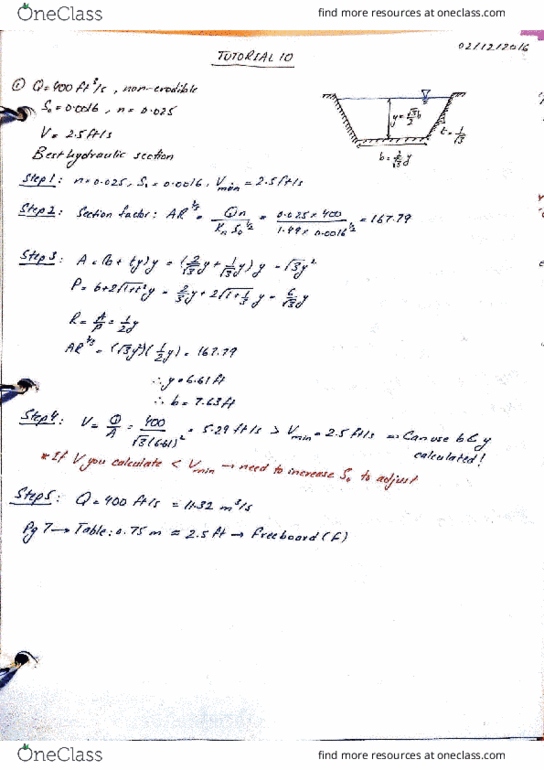 OneClass find more resources at oneclass.com
02/12/2016
TUTORIAL 10
① Q=400 ft³/s, non-erodible
S₀ = 0.0016, n = 0.025
V = 2.5 ft/s
Best hydraulic section
y = √3/2 b
t = 1/√3
b = 2/√3 y
Step 1: n=0.025, S₀ = 0.0016, Vmin = 2.5 ft/s
Step 2: Section factor: AR^2/3 = Qn / Kn S₀^1/2 = 0.025 × 400 / 1.49 × 0.0016^1/2 = 167.79
Step 3: A = (b + ty)y = (2/√3 y + 1/√3 y) y = √3y²
P = b + 2√1+t² y = 2/√3 y + 2√1+1/3 y = 6/√3 y
R = A/P = 1/2 y
AR^2/3 = (√3y²)(1/2 y) = 167.79
∴ y = 6.61 ft
∴ b = 7.63 ft
Step 4: V = Q/A = 400 / √3(6.61)² = 5.29 ft/s > Vmin = 2.5 ft/s ⇒ Can use b & y
calculated!
* If V you calculate < Vmin → need to increase S₀ to adjust
Step 5: Q = 400 ft/s = 11.32 m³/s
Pg 7 → Table: 0.75 m = 2.5 ft → Freeboard (F)
OneClass find more resources at oneclass.com